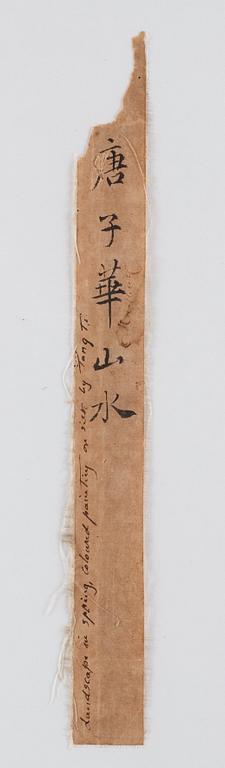 唐子華山水
Landscape in spring, coloured painting on silk by Tang Ti